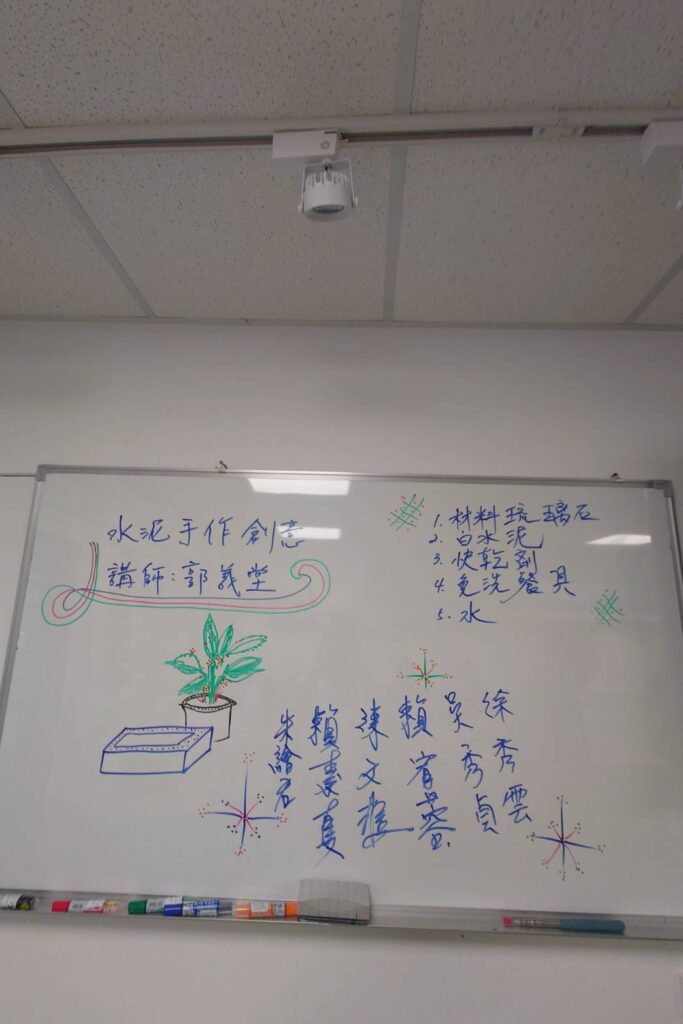 水泥手作創意
講師:郭義堂
1. 材料琉璃石
2. 白水泥
3. 快乾劑
4. 免洗餐具
5. 水
徐秀雲
吳秀貞
賴宥蓁
陳文
賴素
朱繪名